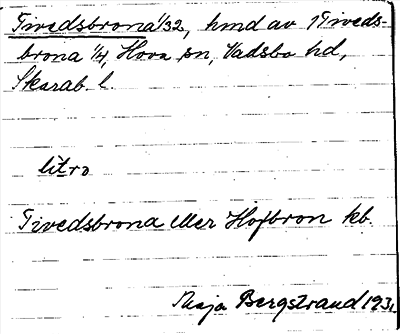 Tivedsbrona 1/32, hmd av Tiveds-
brona 1/4, Hova sn, Vadsbo hd,
Skarab. l.
litro
Tivedsbrona eller Hofbron kb.
Maja Bergstrand 1931